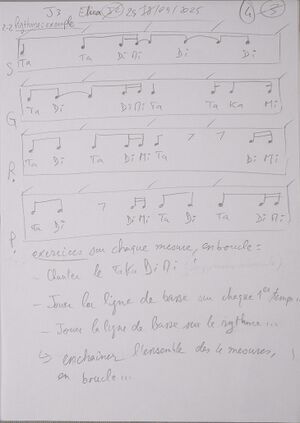 J3 Elisa 25 18/09/2025 4 3
2-2 Rythmes exemple
S Ta Ta Di Mi Di Di
G Ta Di Di Mi Ta Ta Ka Mi
R Ta Di Ta Di Mi Ta Di Mi
P Ta Di Di Mi Ta Di Ta Di Mi
exercices sur chaque mesure, en boucle =
- Chanter le Ta Ka Di Mi
- Jouer la ligne de basse sur chaque 1er temps...
- Jouer la ligne de Basse sur le rythme...
↳ enchaîner l'ensemble des 4 mesures,
en boucle...